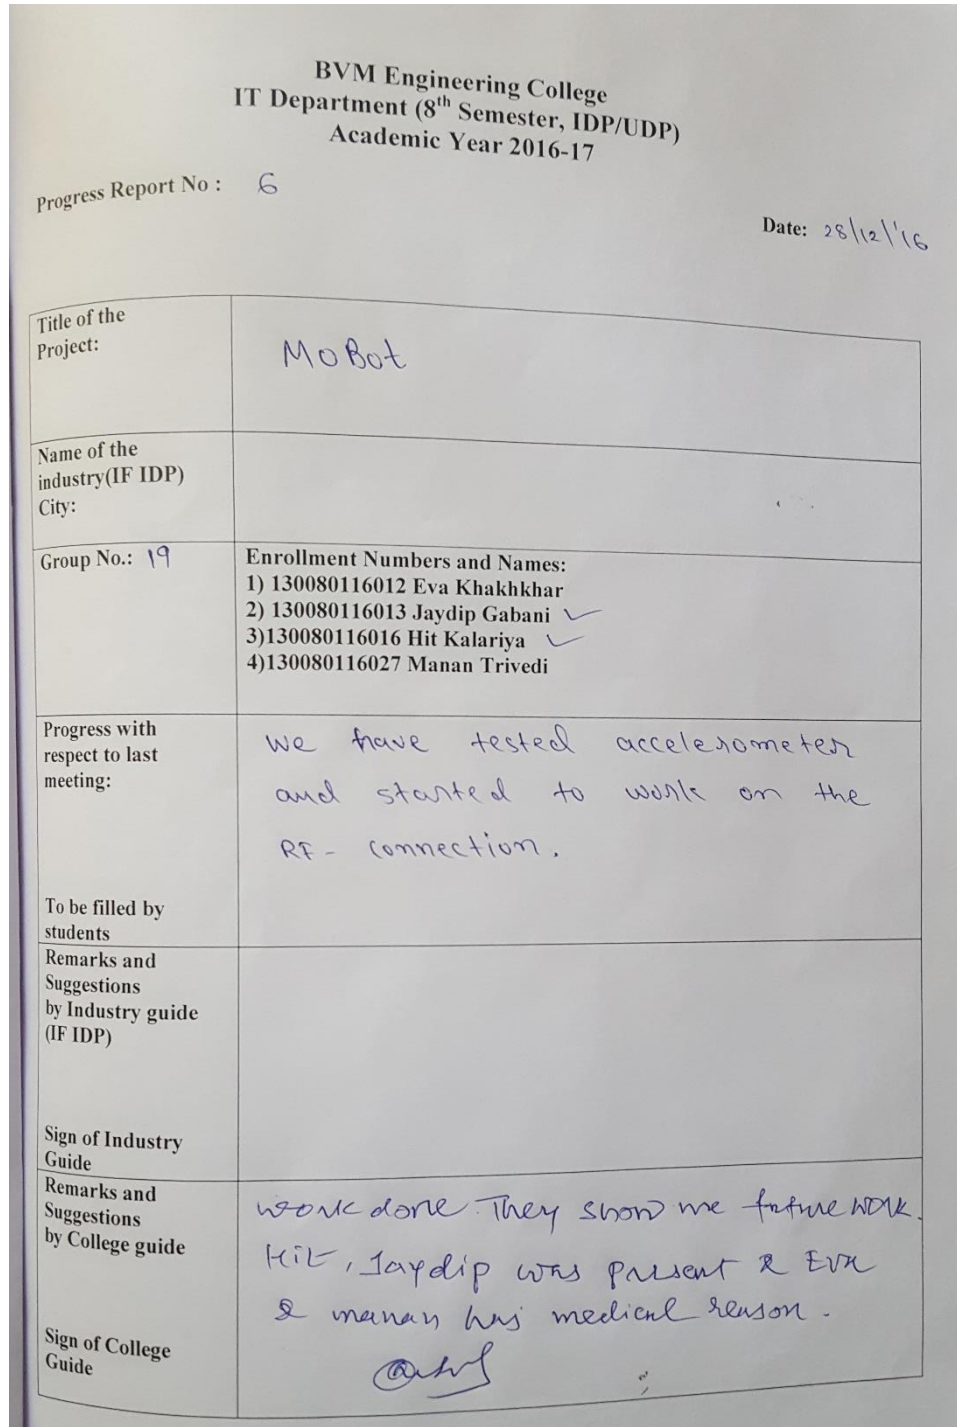 BVM Engineering College
IT Department (8th Semester, IDP/UDP)
Academic Year 2016-17
Progress Report No : 6
Date: 28/12/'16
Title of the
Project:
MoBot
Name of the
industry(IF IDP)
City:
Group No.: 19
Enrollment Numbers and Names:
1) 130080116012 Eva Khakhkhar
2) 130080116013 Jaydip Gabani
3)130080116016 Hit Kalariya
4)130080116027 Manan Trivedi
Progress with
respect to last
meeting:
we have tested accelerometer
and started to work on the
RF - connection.
To be filled by
students
Remarks and
Suggestions
by Industry guide
(IF IDP)
Sign of Industry
Guide
Remarks and
Suggestions
by College guide
work done. They show me future work.
Hit, Jaydip was present & Eva
& manan has medical reason.
Sign of College
Guide